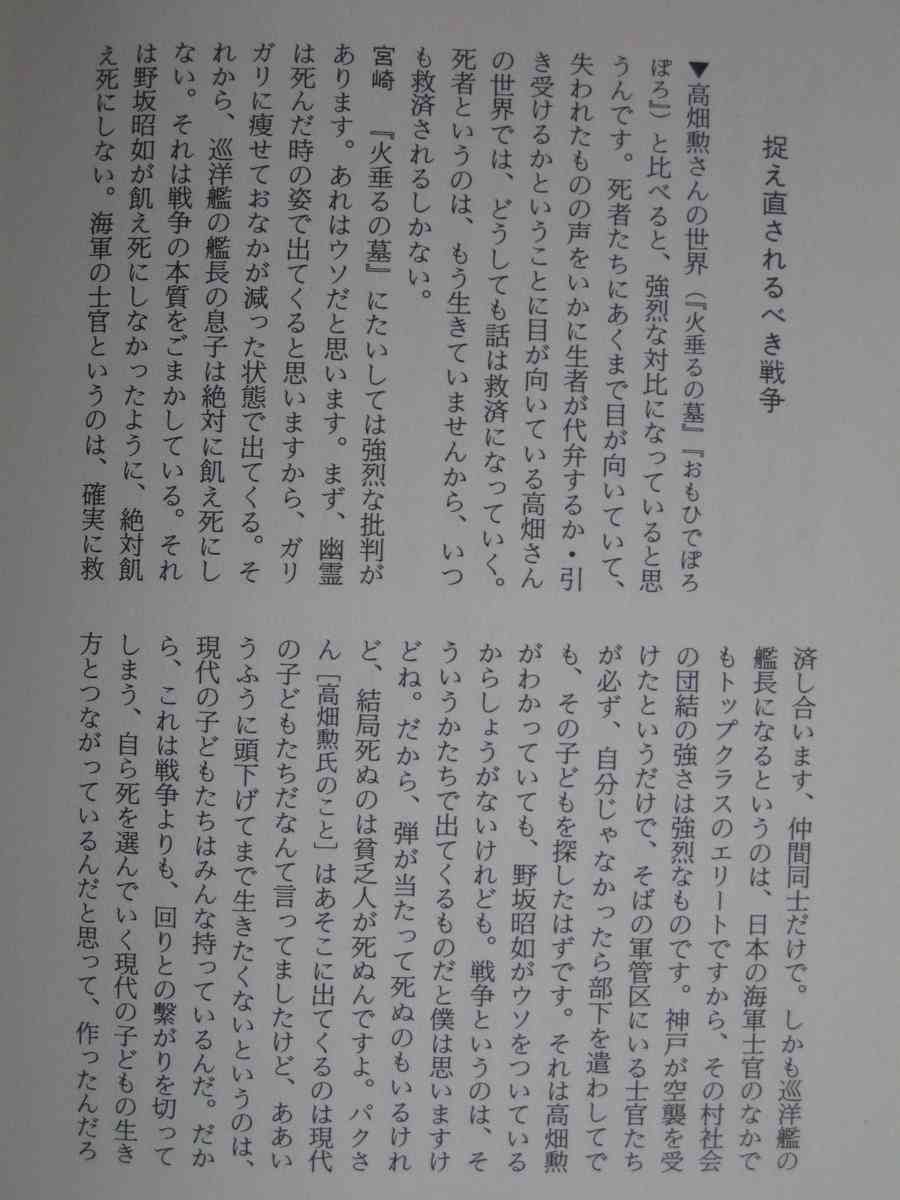 捉え直されるべき戦争
▼高畑勲さんの世界（『火垂るの墓』『おもひでぽろ
ぽろ』）と比べると、強烈な対比になっていると思
うんです。死者たちにあくまで目が向いていて、
失われたものの声をいかに生者が代弁するか・引
き受けるかということに目が向いている高畑さん
の世界では、どうしても話は救済になっていく。
死者というのは、もう生きていませんから、いつ
も救済されるしかない。
宮崎　『火垂るの墓』にたいしては強烈な批判が
あります。あれはウソだと思います。まず、幽霊
は死んだ時の姿で出てくると思いますから、ガリ
ガリに痩せておなかが減った状態で出てくる。そ
れから、巡洋艦の艦長の息子は絶対に飢え死にし
ない。それは戦争の本質をごまかしている。それ
は野坂昭如が飢え死にしなかったように、絶対飢
え死にしない。海軍の士官というのは、確実に救
済し合います、仲間同士だけで。しかも巡洋艦の
艦長になるというのは、日本の海軍士官のなかで
もトップクラスのエリートですから、その村社会
の団結の強さは強烈なものです。神戸が空襲を受
けたというだけで、そばの軍管区にいる士官たち
が必ず、自分じゃなかったら部下を遣わしてで
も、その子どもを探したはずです。それは高畑勲
がわかっていても、野坂昭如がウソをついている
からしょうがないけれども。戦争というのは、そ
ういうかたちで出てくるものだと僕は思いますけ
どね。だから、弾が当たって死ぬのもいるけれ
ど、結局死ぬのは貧乏人が死ぬんですよ。パクさ
ん［高畑勲氏のこと］はあそこに出てくるのは現代
の子どもたちだなんて言ってましたけど、ああい
うふうに頭下げてまで生きたくないというのは、
現代の子どもたちはみんな持っているんだ。だか
ら、これは戦争よりも、回りとの繋がりを切って
しまう、自ら死を選んでいく現代の子どもの生き
方とつながっているんだと思って、作ったんだろ